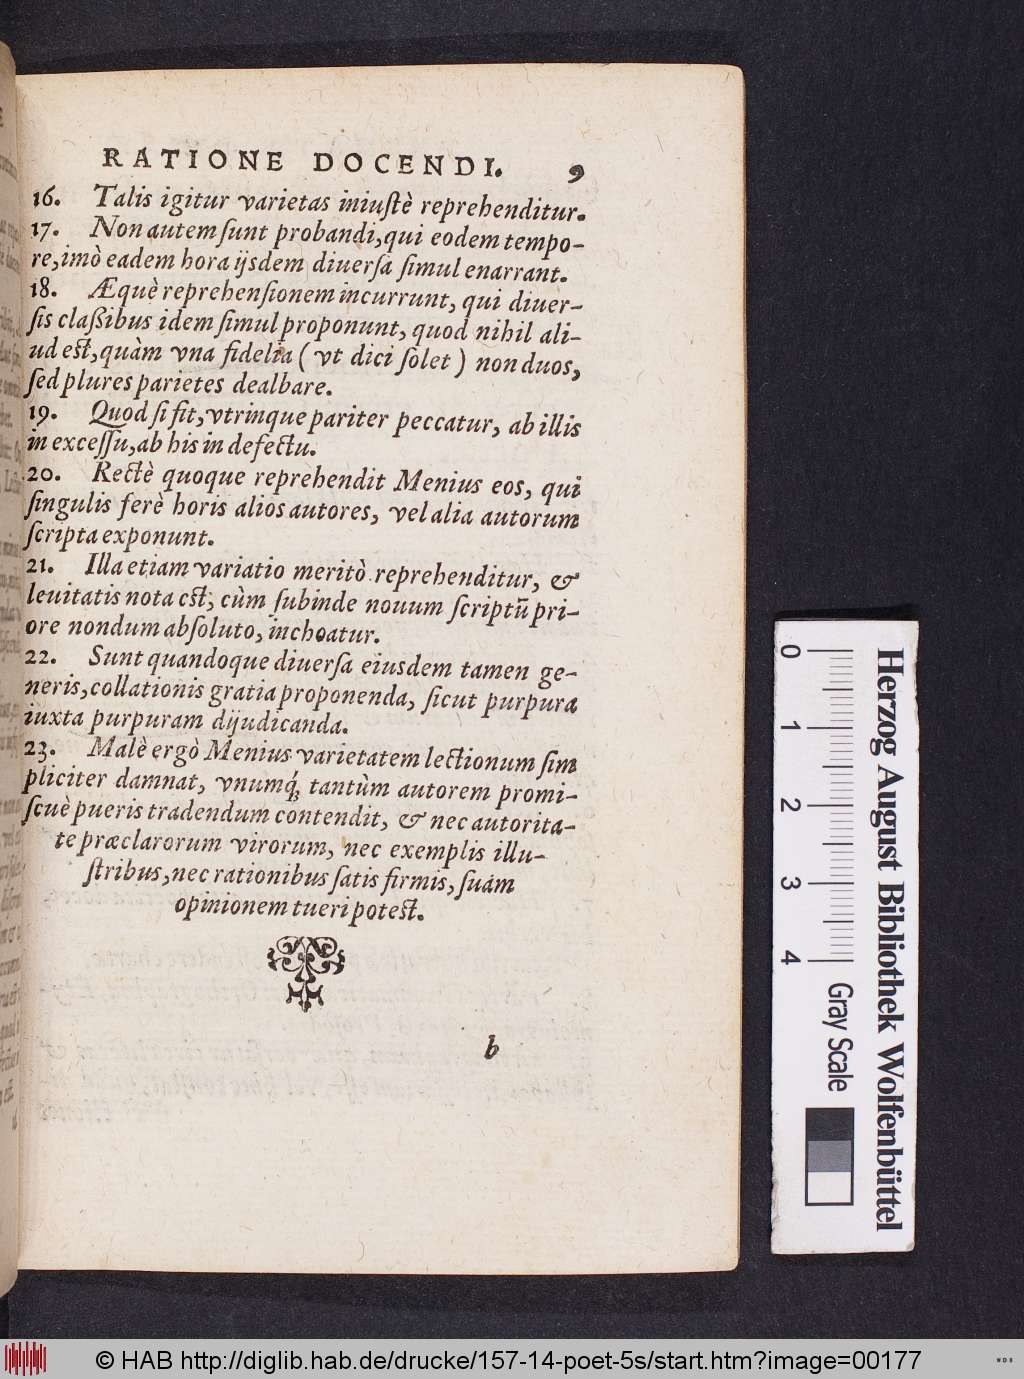 RATIONE DOCENDI. 9
16. Talis igitur varietas iniustè reprehenditur.
17. Non autem sunt probandi, qui eodem tempo-
re, imò eadem hora ijsdem diuersa simul enarrant.
18. Æquè reprehensionem incurrunt, qui diuer-
sis claßibus idem simul proponunt, quod nihil ali-
ud est, quàm vna fidelia ( vt dici solet ) non duos,
sed plures parietes dealbare.
19. Quod si fit, vtrinque pariter peccatur, ab illis
in excessu, ab his in defectu.
20. Rectè quoque reprehendit Menius eos, qui
singulis ferè horis alios autores, vel alia autorum
scripta exponunt.
21. Illa etiam variatio meritò reprehenditur, &
leuitatis nota est, cùm subinde nouum scriptū pri-
ore nondum absoluto, inchoatur.
22. Sunt quandoque diuersa eiusdem tamen ge-
neris, collationis gratia proponenda, sicut purpura
iuxta purpuram dijudicanda.
23. Malè ergò Menius varietatem lectionum sim
pliciter damnat, vnumq́; tantùm autorem promi-
scuè pueris tradendum contendit, & nec autorita-
te præclarorum virorum, nec exemplis illu-
stribus, nec rationibus satis firmis, suam
opinionem tueri potest.
b
0 1 2 3 4
Gray Scale
Herzog August Bibliothek Wolfenbüttel
© HAB http://diglib.hab.de/drucke/157-14-poet-5s/start.htm?image=00177